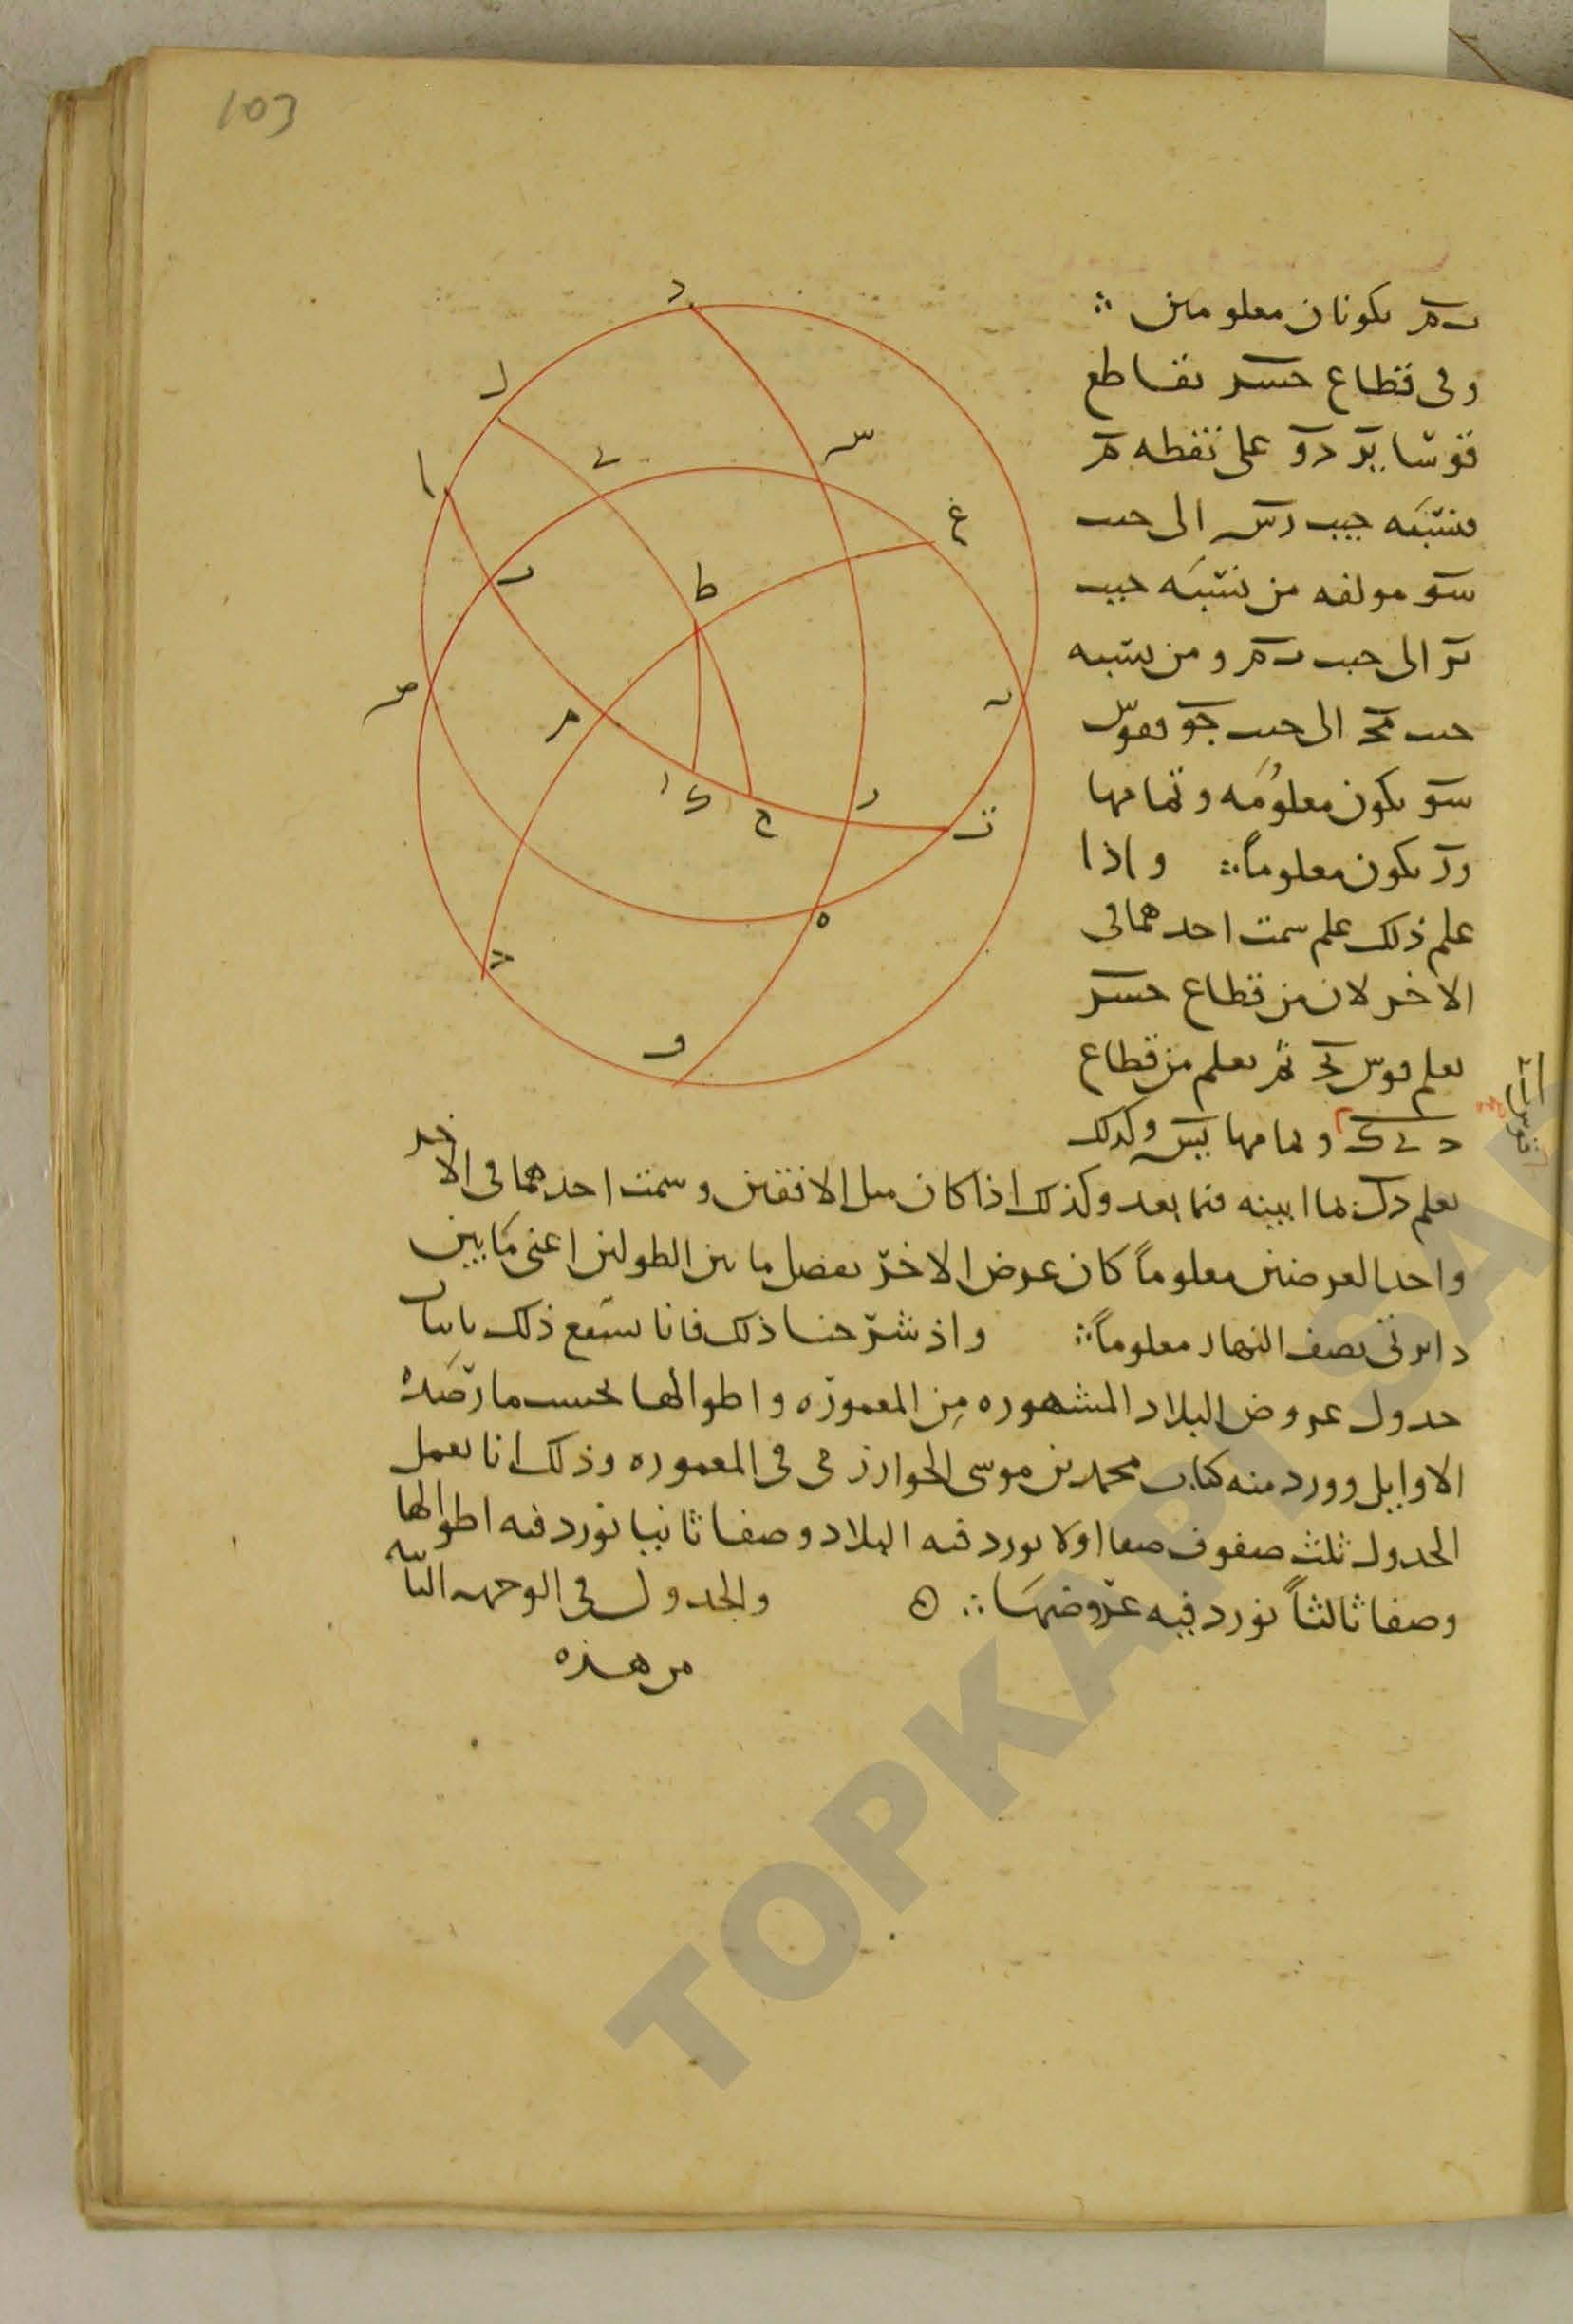 103
ٮم ٮكونان معلومين ∴
وفى قطاع حسر تقاطع
قوسا بر دو على نقطه م
فنسبه جيب رس الى جيب
سو مولفه من نسبه جيب
ٮر الى جيب ٮم ومن نسبه
جيب مح الى جيب جو فقوس
سو يكون معلومه وتمامها
ور يكون معلوماً ∴ واذا
علم ذلك علم سمت احدهما فى
الاخر لان من قطاع حسر
يعلم قوس ثم يعلم من قطاع
وتمامها يس وكذلك
يعلم دك لما ابينه فيما بعد وكذلك اذا كان ميل الافقين وسمت احدهما فى الاخر
واحد العرضين معلوماً كان عرض الاخر بفضل ما بين الطولين اعنى ما بين
دايرتى نصف النهار معلوماً ∴ واذ شرحنا ذلك فانا نتبع ذلك باثبات
جدول عروض البلاد المشهوره من المعموره واطوالها بحسب ما رصده
الاوايل وورد منه كتاب محمد بن موسى الخوارزمى فى المعموره وذلك انا نعمل
الجدول ثلث صفوف صفا اولا نورد فيه البلاد وصفا ثانيا نورد فيه اطوالها
وصفا ثالثاً نورد فيه عروضها ∴ ه والجدول فى الوجهه
من هذه
د
ل
ا
ى
س
ع
ط
ب
ص
م
ك
ح
ر
ت
ه
ج
و
TOPKAPI SA